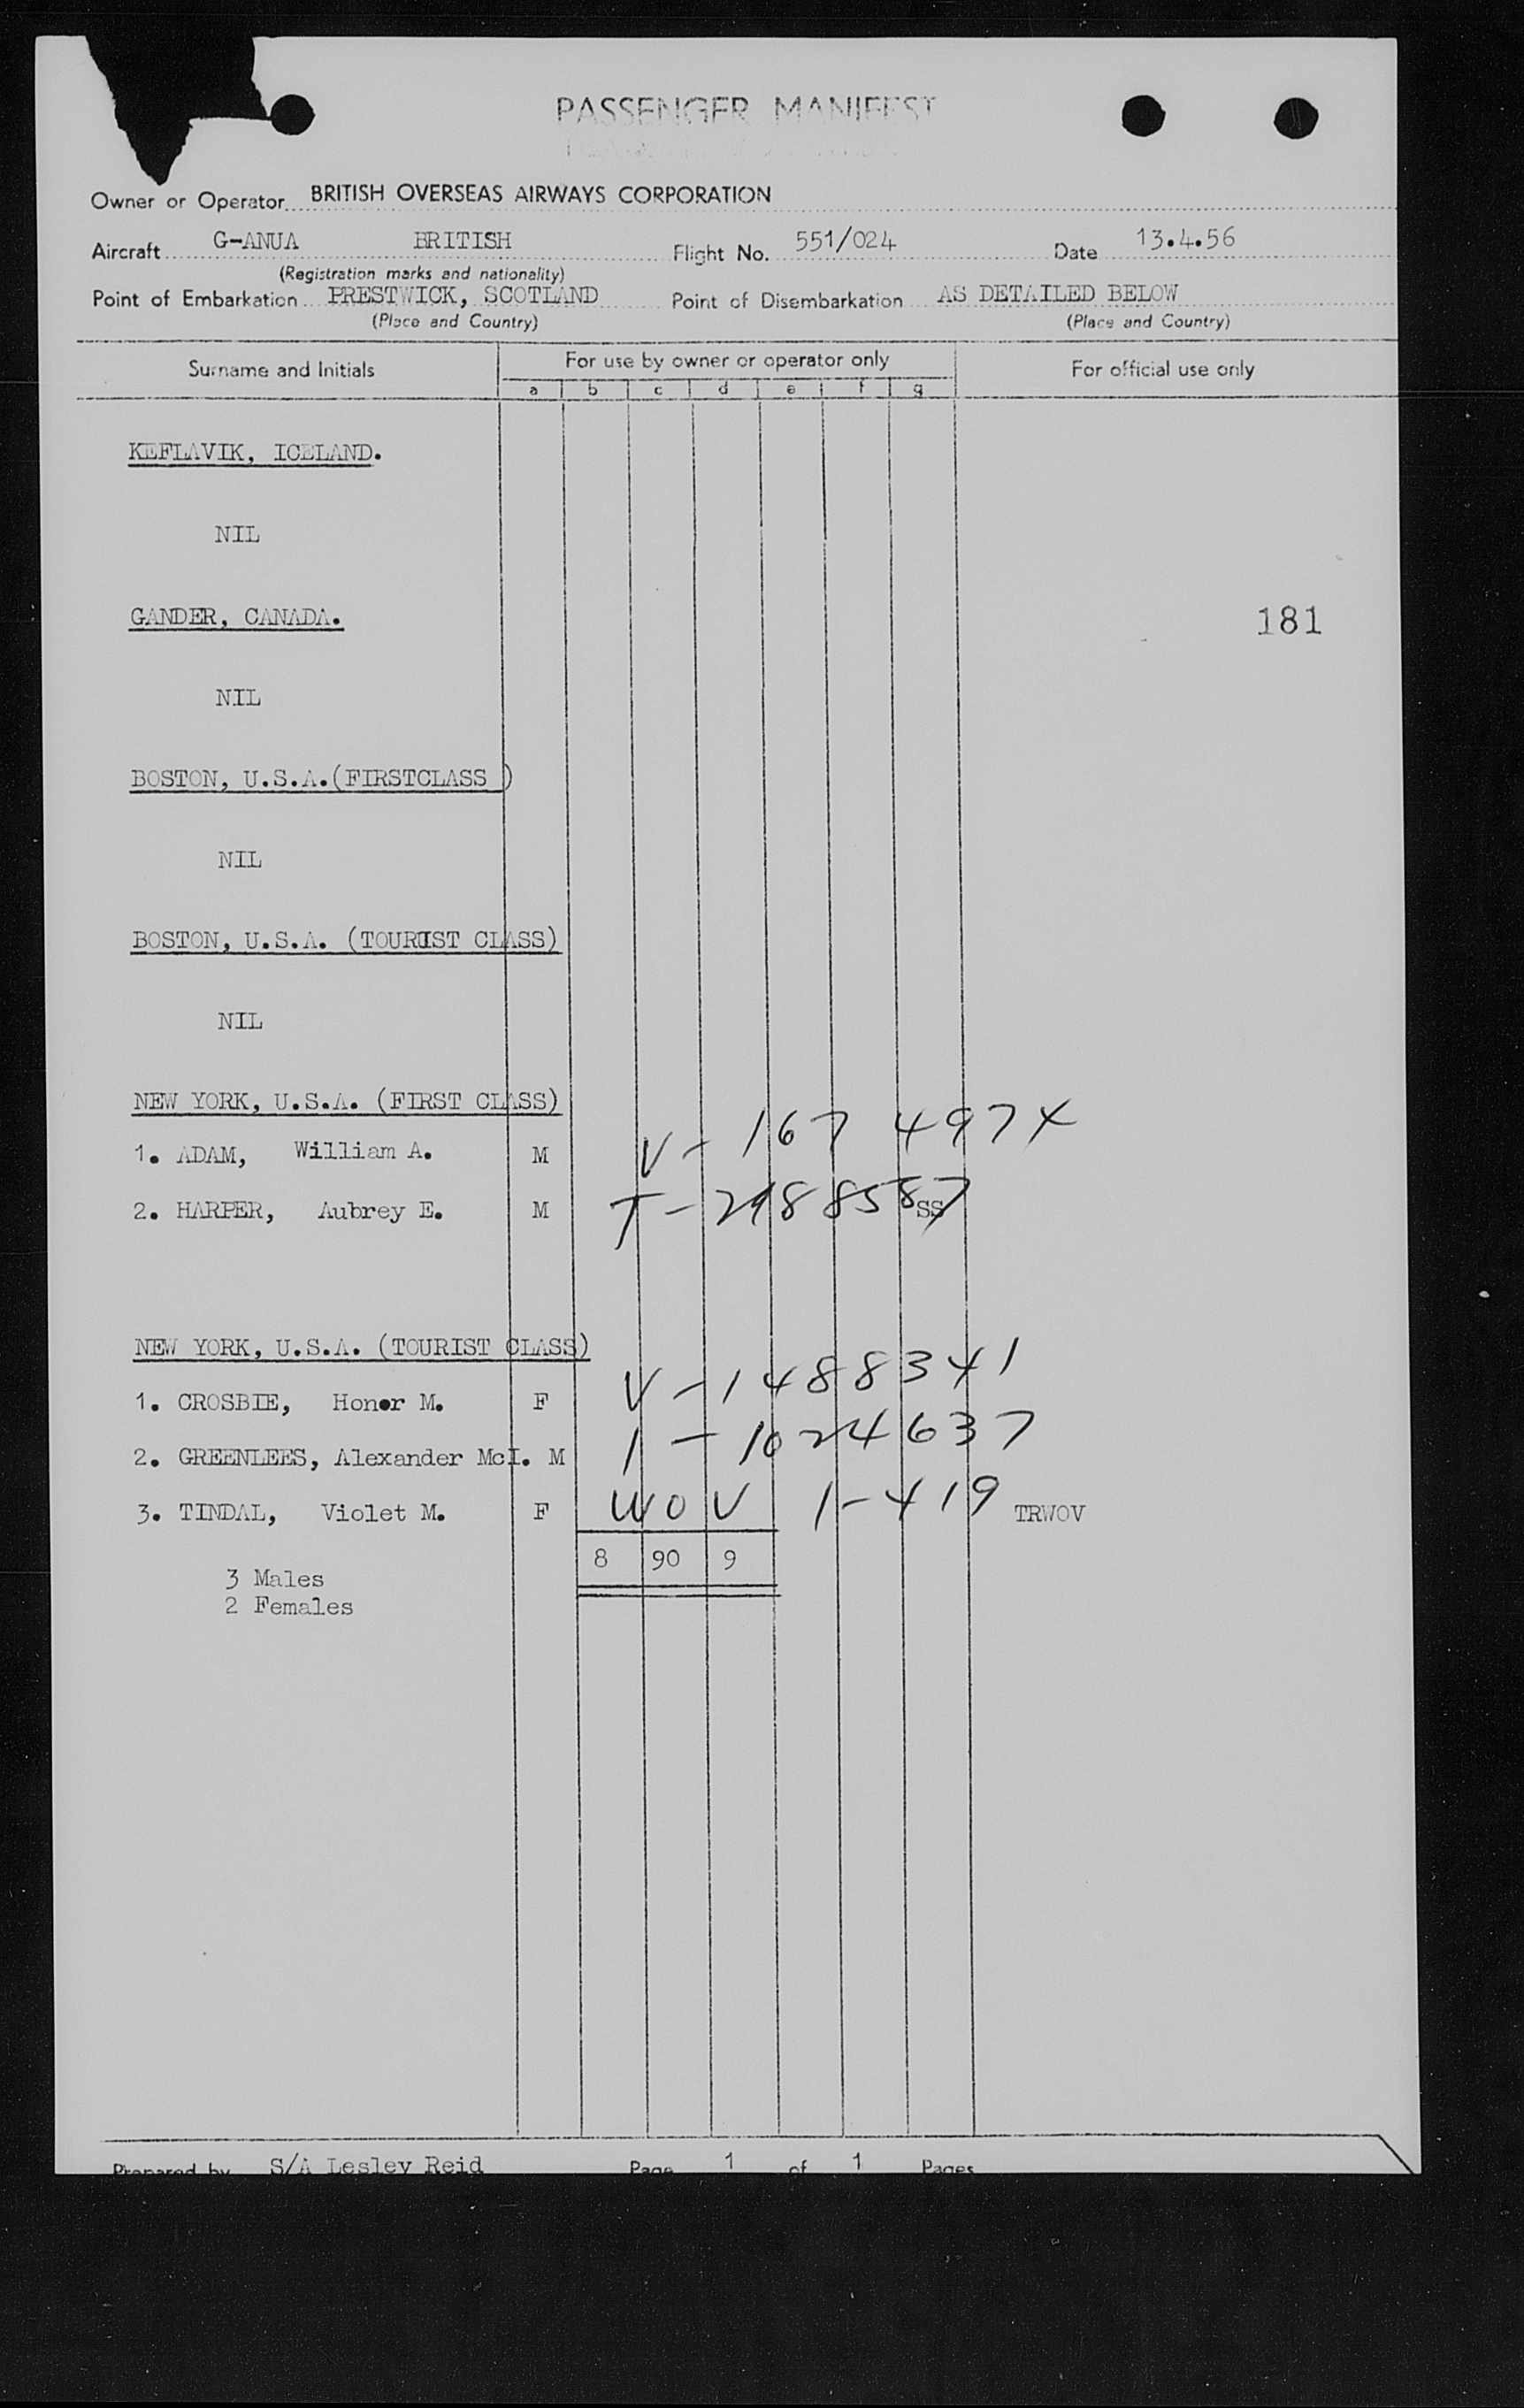 PASSENGER MANIFEST
Owner or Operator BRITISH OVERSEAS AIRWAYS CORPORATION
Aircraft G-ANUA BRITISH Flight No. 551/024 Date 13.4.56
(Registration marks and nationality)
Point of Embarkation PRESTWICK, SCOTLAND Point of Disembarkation AS DETAILED BELOW
(Place and Country) (Place and Country)
Surname and Initials For use by owner or operator only For official use only
a b c d e f g
KEFLAVIK, ICELAND.
NIL
GANDER, CANADA. 181
NIL
BOSTON, U.S.A.(FIRSTCLASS )
NIL
BOSTON, U.S.A. (TOURIST CLASS)
NIL
NEW YORK, U.S.A. (FIRST CLASS)
1. ADAM, William A. M V-167 4974
2. HARPER, Aubrey E. M T-2988587 SS
NEW YORK, U.S.A. (TOURIST CLASS)
1. CROSBIE, Honor M. F V-1488341
2. GREENLEES, Alexander McI. M 1-1024637
3. TINDAL, Violet M. F WOV 1-419 TRWOV
8 90 9
3 Males
2 Females
Prepared by S/A Lesley Reid Page 1 of 1 Pages